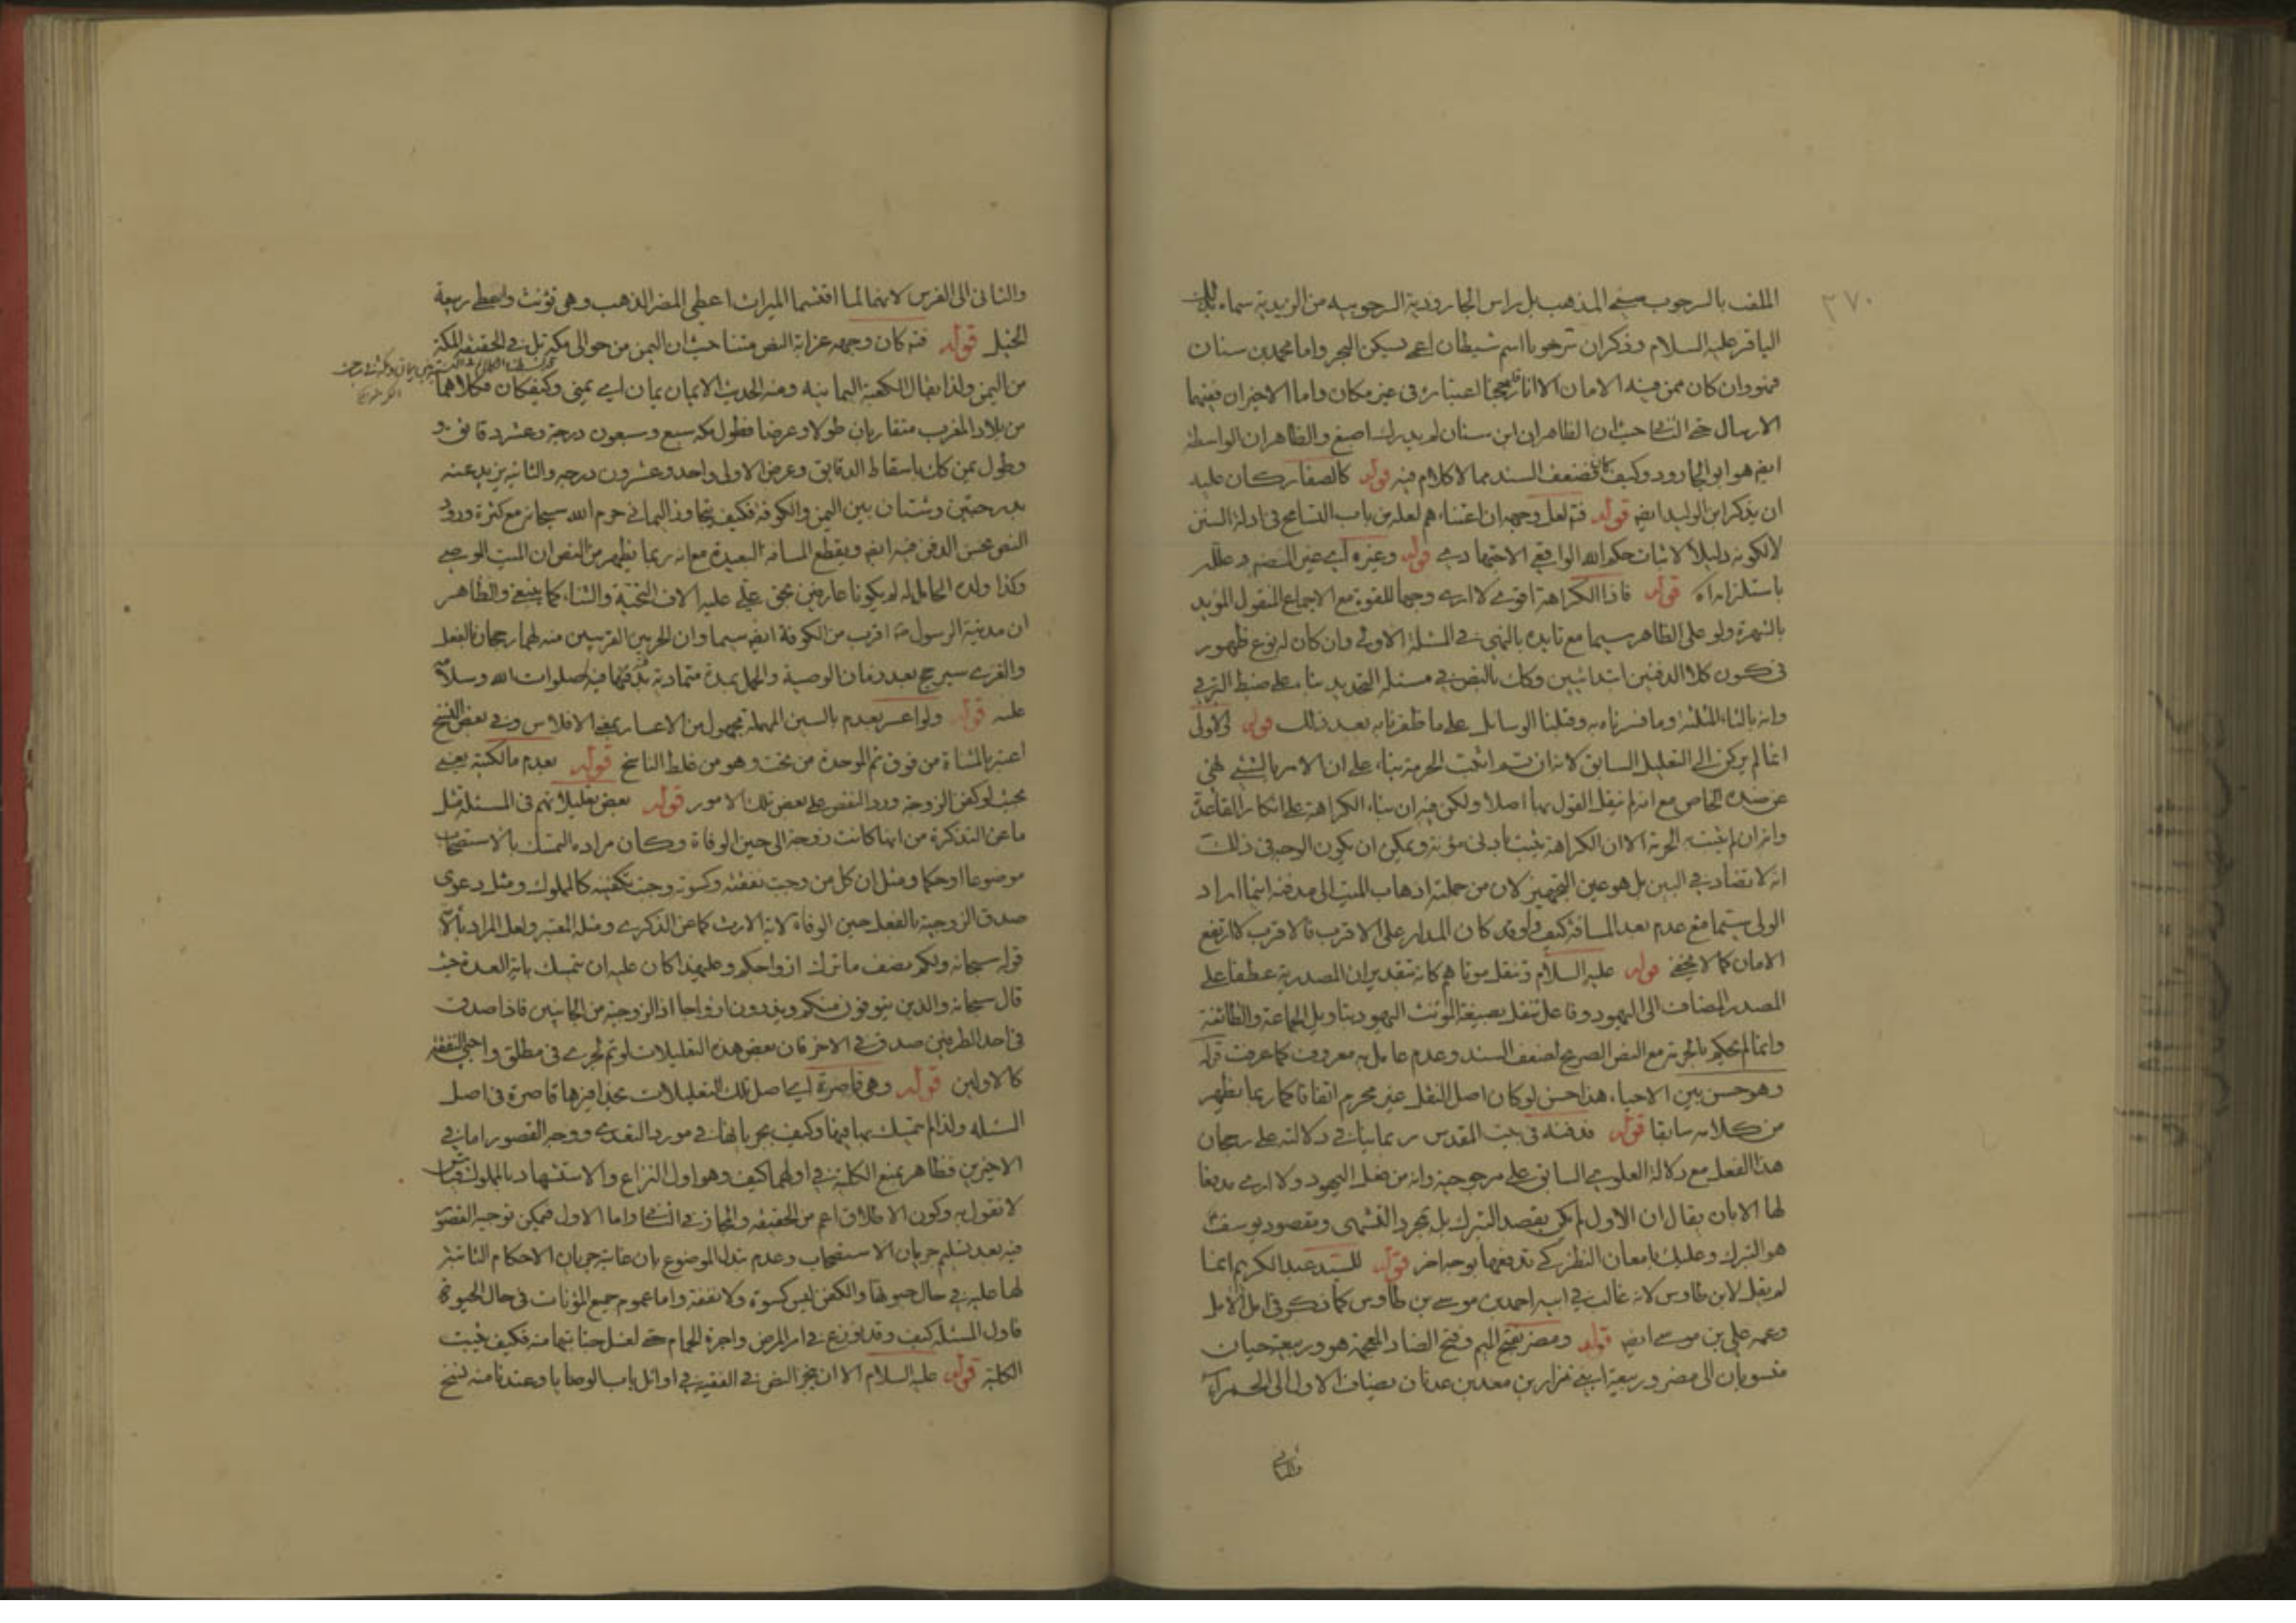 ٢٧٠
الملقب بالسرحوب المذهب بل راس الجارودية السرحوبيه من الزيدية سماه بذلك
الباقر عليه السلام وذكر ان سرحوبا اسم شيطان اعمى يسكن البحر واما محمد بن سنان
فهو وان كان ممن فيه الامان الا انا اعتباره في غير مكان واما الاخيران ففيهما
الارسال حتى الثاني حيث ان الظاهر ان ابن سنان لم يدرك اصبغ والظاهر ان الواسطة
ايضم هو ابو الجارود وكيف كان فضعف السند مما لا كلام فيه قوله كالصفار كان عليه
ان يذكر ابن الوليد ايضم قوله فتم لعل وجهه ان اعتناءهم لعله من باب التسامح في ادلة السنن
لا لكونه دليلا لاثبات حكم الله الواقعي الاجتهادي قوله وغيره اي غير النص وعلل
باستلزامه اه قوله فاذا الكراهة اقوى لا ارى وجها للقوة مع الاجماع المنقول المؤيد
بالشهرة ولو على الظاهر سيما مع تايده بالنهي في المسئلة الاولى وان كان له نوع ظهور
في كون كلا الدفنين ابتدائيين وكان بالنص في مسئلة التحديد بناء على ضبط
وانه بالثاء المثلثة وما فسرناه به وقبلنا الوسائل على ما ظفرنا به بعد ذلك قوله الاولى
انما لم يركن الى التعليل السابق لانه ان تم اثبت الحرمة بناء على ان الامر بالشئ نهي
عن ضده الخاص مع انه لم ينقل القول بها اصلا ولكن فيه ان بناء الكراهة على انكار القاعدة
وانه ان لم يثبت به الحرمة الا ان الكراهة يثبت بادنى مؤنة ويمكن ان يكون الوجه في ذلك
انه لا تضاد في البين بل هو عين التجهيز لان من جملته اذهاب الميت الى مدفنه اينما اراد
الولي سيما مع عدم بعد المسافة كيف ولو قد كان المدار على الاقرب فالاقرب لارتفع
الامان كما لا يخفى قوله عليه السلام وتنقل موتاهم كانه بتقدير ان المصدرية عطفا على
المصدر المضاف الى اليهود وفاعل تنقل بصيغة المؤنث اليهود بتاويل الجماعة والطائفة
وانما لم يحكم بالحرمة مع النص الصريح لضعف السند وعدم عامل به معروف كما عرفت قوله
وهو حسن بين الاحياء هذا حسن لو كان اصل النقل غير محرم اتفاقا كما ربما يظهر
من كلامه سابقا قوله فدفنه في بيت المقدس ربما يناقش في دلالته على رجحان
هذا الفعل مع دلالة العلوي السابق على مرجوحيته وانه من فعل اليهود ولا ارى مدفعا
لها الا بان يقال ان الاول لم يكن بقصد التبرك بل بمجرد التشهي ومقصود يوسف ع
هو التبرك وعليك بامعان النظر كي تدفعها بوجه اخر قوله للسيد عبد الكريم انما
لم يقل لابن طاوس لانه غالب في ابيه احمد بن موسى بن طاوس كما ذكره في امل الامل
وعمه علي بن موسى ايضم قوله ومضر بضم الميم وفتح الضاد المعجمة هو وربيعة حيان
منسوبان الى مضر وربيعة ابني نزار بن معد بن عدنان يضاف الاول الى الحمراء
والثاني
والثاني الى الفرس لانهما لما اقتسما الميراث اعطي المضر الذهب وهي تؤنث واعطي ربيعة
الخيل قوله فتم كان وجهه غرابة النص متنا حيث ان اليمن من حوالى مكة بل في الحقيقة المكة
من اليمن ولذا يقال الكعبة اليمانية ومنه الحديث الايمان يمان اي يمني وكيف كان فكلاهما
من بلاد المغرب متقاربان طولا وعرضا فطول مكه سبع وسبعون درجة وعشر دقايق و
وطول يمن كان باسقاط الدقايق وعرض الاولى واحد وعشرون درجه والثانيه يزيد عنه
بدرجتين وشتان بين اليمن والكوفة فكيف يتجاوز اليماني حرم الله سبحانه مع كثرة ورود
النص بحسن الدفن فيه ايضم ويقطع المسافة البعيدة مع انه ربما يظهر من النص ان الميت الوصي
وكذا ولده الحامل له لم يكونا عارفين بحق علي عليه الاف التحية والثناء كما ينبغي والظاهر
ان مدينة الرسول ص اقرب من الكوفة ايضم سيما وان الحرمين القريبين منه لهما رجحان بالفعل
والغري سيرجح بعد زمان الوصية والحمل بمدة متمادية بدفنهما فيه صلوات الله وسلامه
عليه قوله ولو اعسر بعدم بالسين المهملة مجهول من الاعسار بمعنى الافلاس وفي بعض النسخ
اعتبر بالمثناة من فوق ثم الموحدة من تحت وهو من غلط الناسخ قوله بعدم مالكيته يعني
بحيث لو كفن الزوجه ورد النقص على بعض تلك الامور قوله بعض تعليلاتهم في المسئلة مثل
ما عن التذكرة من انها كانت زوجة الى حين الوفاة وكان مراده التمسك بالاستصحاب
موضوعا او حكما ومثل ان كل من وجبت نفقته وكسوته وجبت تكفينه كالمملوك ومثل دعوى
صدق الزوجية بالفعل حين الوفاة لاية الارث كما عن الذكرى ومثله المعتبر ولعل المراد بالاية
قوله سبحانه ولكم نصف ما ترك ازواجكم وعليهذا كان عليه ان يتمسك باية العدة حيث
قال سبحانه والذين يتوفون منكم ويذرون ازواجا اذ الزوجية من الجانبين فاذا صدقت
في احد الطرفين صدق في الاخر فان بعض هذه التعليلات لو تم لجرى في مطلق واجبي النفقة
كالاولين قوله وهي قاصرة اي اصل تلك التعليلات بحذافيرها قاصرة في اصل
المسئله ولذا لم يتمسك بها فيها وكيف بجريانها في مورد التعدي ووجه القصور اما في
الاخيرين فظاهر بمنع الكلية في اولهما كيف وهو اول النزاع والاستشهاد بالمملوك قياس
لا نقول به وكون الاطلاق اعم من الحقيقة والمجاز في الثاني واما الاول فيمكن توجيه القصور
فيه بعد تسليم جريان الاستصحاب وعدم تبدل الموضوع بان غايته جريان الاحكام الثابتة
لها عليه في حال حيوتها والكفن ليس كسوة ولا نفقة واما عموم جميع المؤنات في حال الحيوة
فاول المسئلة كيف وقد نوزع في امر المرض واجرة الحمام حتى لغسل جنابتها منه فكيف يثبت
الكلية قوله عليه السلام الا ان ينجز النص في الفقيه في اوائل باب الوصايا وعندنا منه نسخ